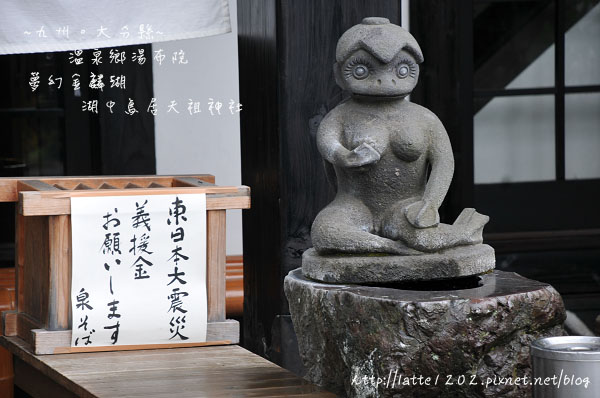 ~九州。大分縣~
溫泉鄉湯布院
夢幻金麟湖
湖中鳥居天祖神社
東日本大震災
義援金
お願いします
泉そば
http://latte1202.pixnet.net/blog